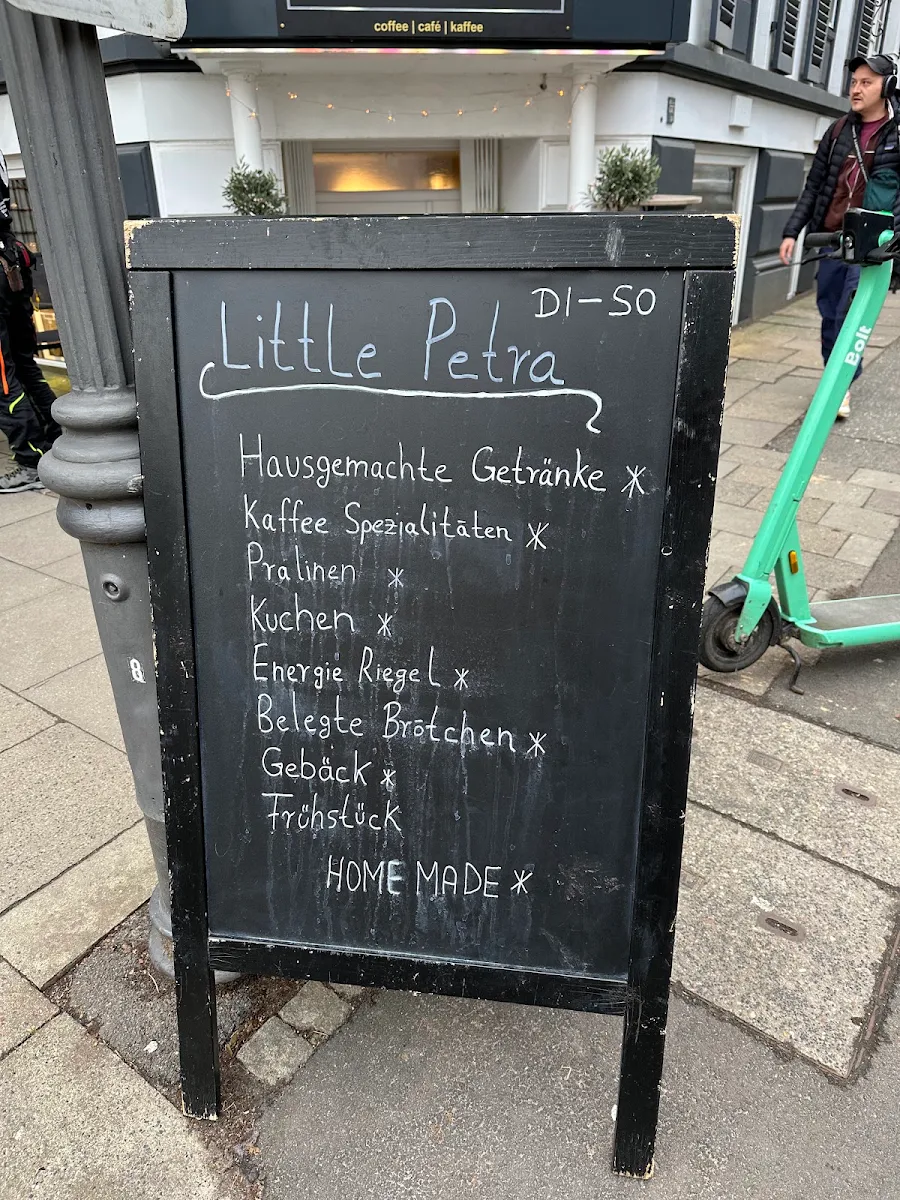 coffee | café | kaffee
DI-SO
Little Petra
Hausgemachte Getränke *
Kaffee Spezialitäten *
Pralinen *
Kuchen *
Energie Riegel *
Belegte Brötchen *
Gebäck *
Frühstück
HOME MADE *
Bolt
8